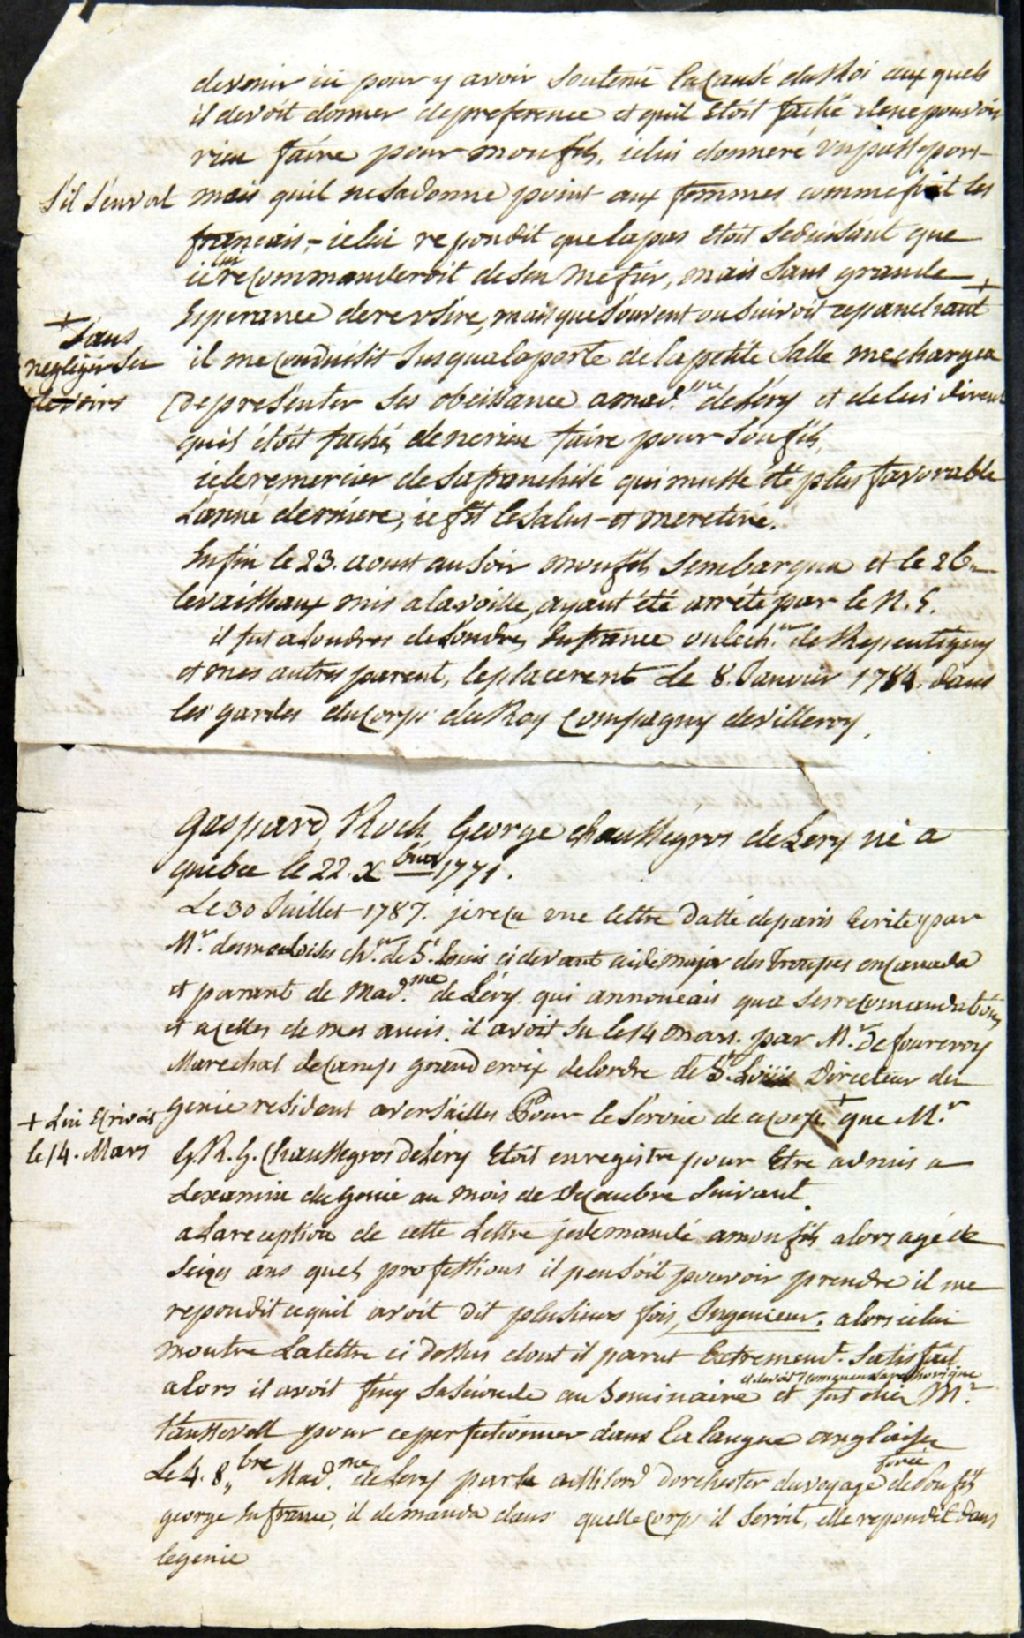 devenir ici pour y avoir soutenu la Cause du Roi aux quels
il devoit donner de preference et quil etoit faché de ne pouvoir
rien faire pour mon fils, je lui donneré un passeport
S'il s'en vat
mais quil ne sadonne point aux femmes comme font les
francais, - je lui repondit que le pas etoit seduisant que
je lui recommanderoit de sen mefier, mais sans grande
Esperance de reusire, mais que souvent on suivoit ce panchant +
+ sans
negliger ses
devoirs
il me conduisit Jusqua la porte de la petite Salle me chargea
De presenter ses obeissance a mad.me de Léry et de lui dire
quil étoit faché de ne rien faire pour son fils,
je le remercier de sa franchise qui mutte été plus favorable
L'anné derniere, je fit le salus - et me retiré.
Enfin le 23. aoust au soir mon fils sembarqua et le 26
le vaisseaux mis a la voille, ayant été arrété par le N. E.
il fut a Londres de Londre, En france ou le ch.r de Repentigny
et mes autres parent, le placerent le 8. Janvier 1784. dans
les gardes du Corps du Roy Compagny de Villeroy.
Gaspard Roch George Chaussegros de Lery né a
quebec le 22. X bre 1771.
Le 30 Juillet 1787. je reçu une lettre datté de paris Ecrite par
Mr. desmeloises chr. de St. Louis ci devant aide major des Troupes en Canada
et parant de Mad.me de Léry qui annoncais qua ses recomandations
et a celles de mes amis. il avoit su le 14 mars. par Mr. De fourcroy
Marechal de Camp grand croix de lordre de St. Louis Directeur du
+ Lui Ecrivoit
le 14. Mars
genie resident a versailles Pour le service de ce corps + que Mr.
G. R. G. Chaussegros de Léry Etoit enregistre pour Etre admis a
L'examin du Genie au mois de Decembre suivant
a la reception de cette Lettre je demandé a mon fils alors agé de
seizes ans quels professions il pensoit pouvoir prendre il me
repondit ce quil avoit dit plusieurs fois, Ingenieur. alors je lui
montre La lettre ci Dessus dont il parut Extremem.t satisfait
alors il avoit finy sa seconde au Seminaire et fut chez Mr.
pour ce perfectionner dans La langue anglaise
Le 4. 8 bre Mad.me de Lery parle a Milord Dorchester du voyage forcé de son fils
george En france, il demanda dans quelle Corps il seroit, elle repondit dans
le genie